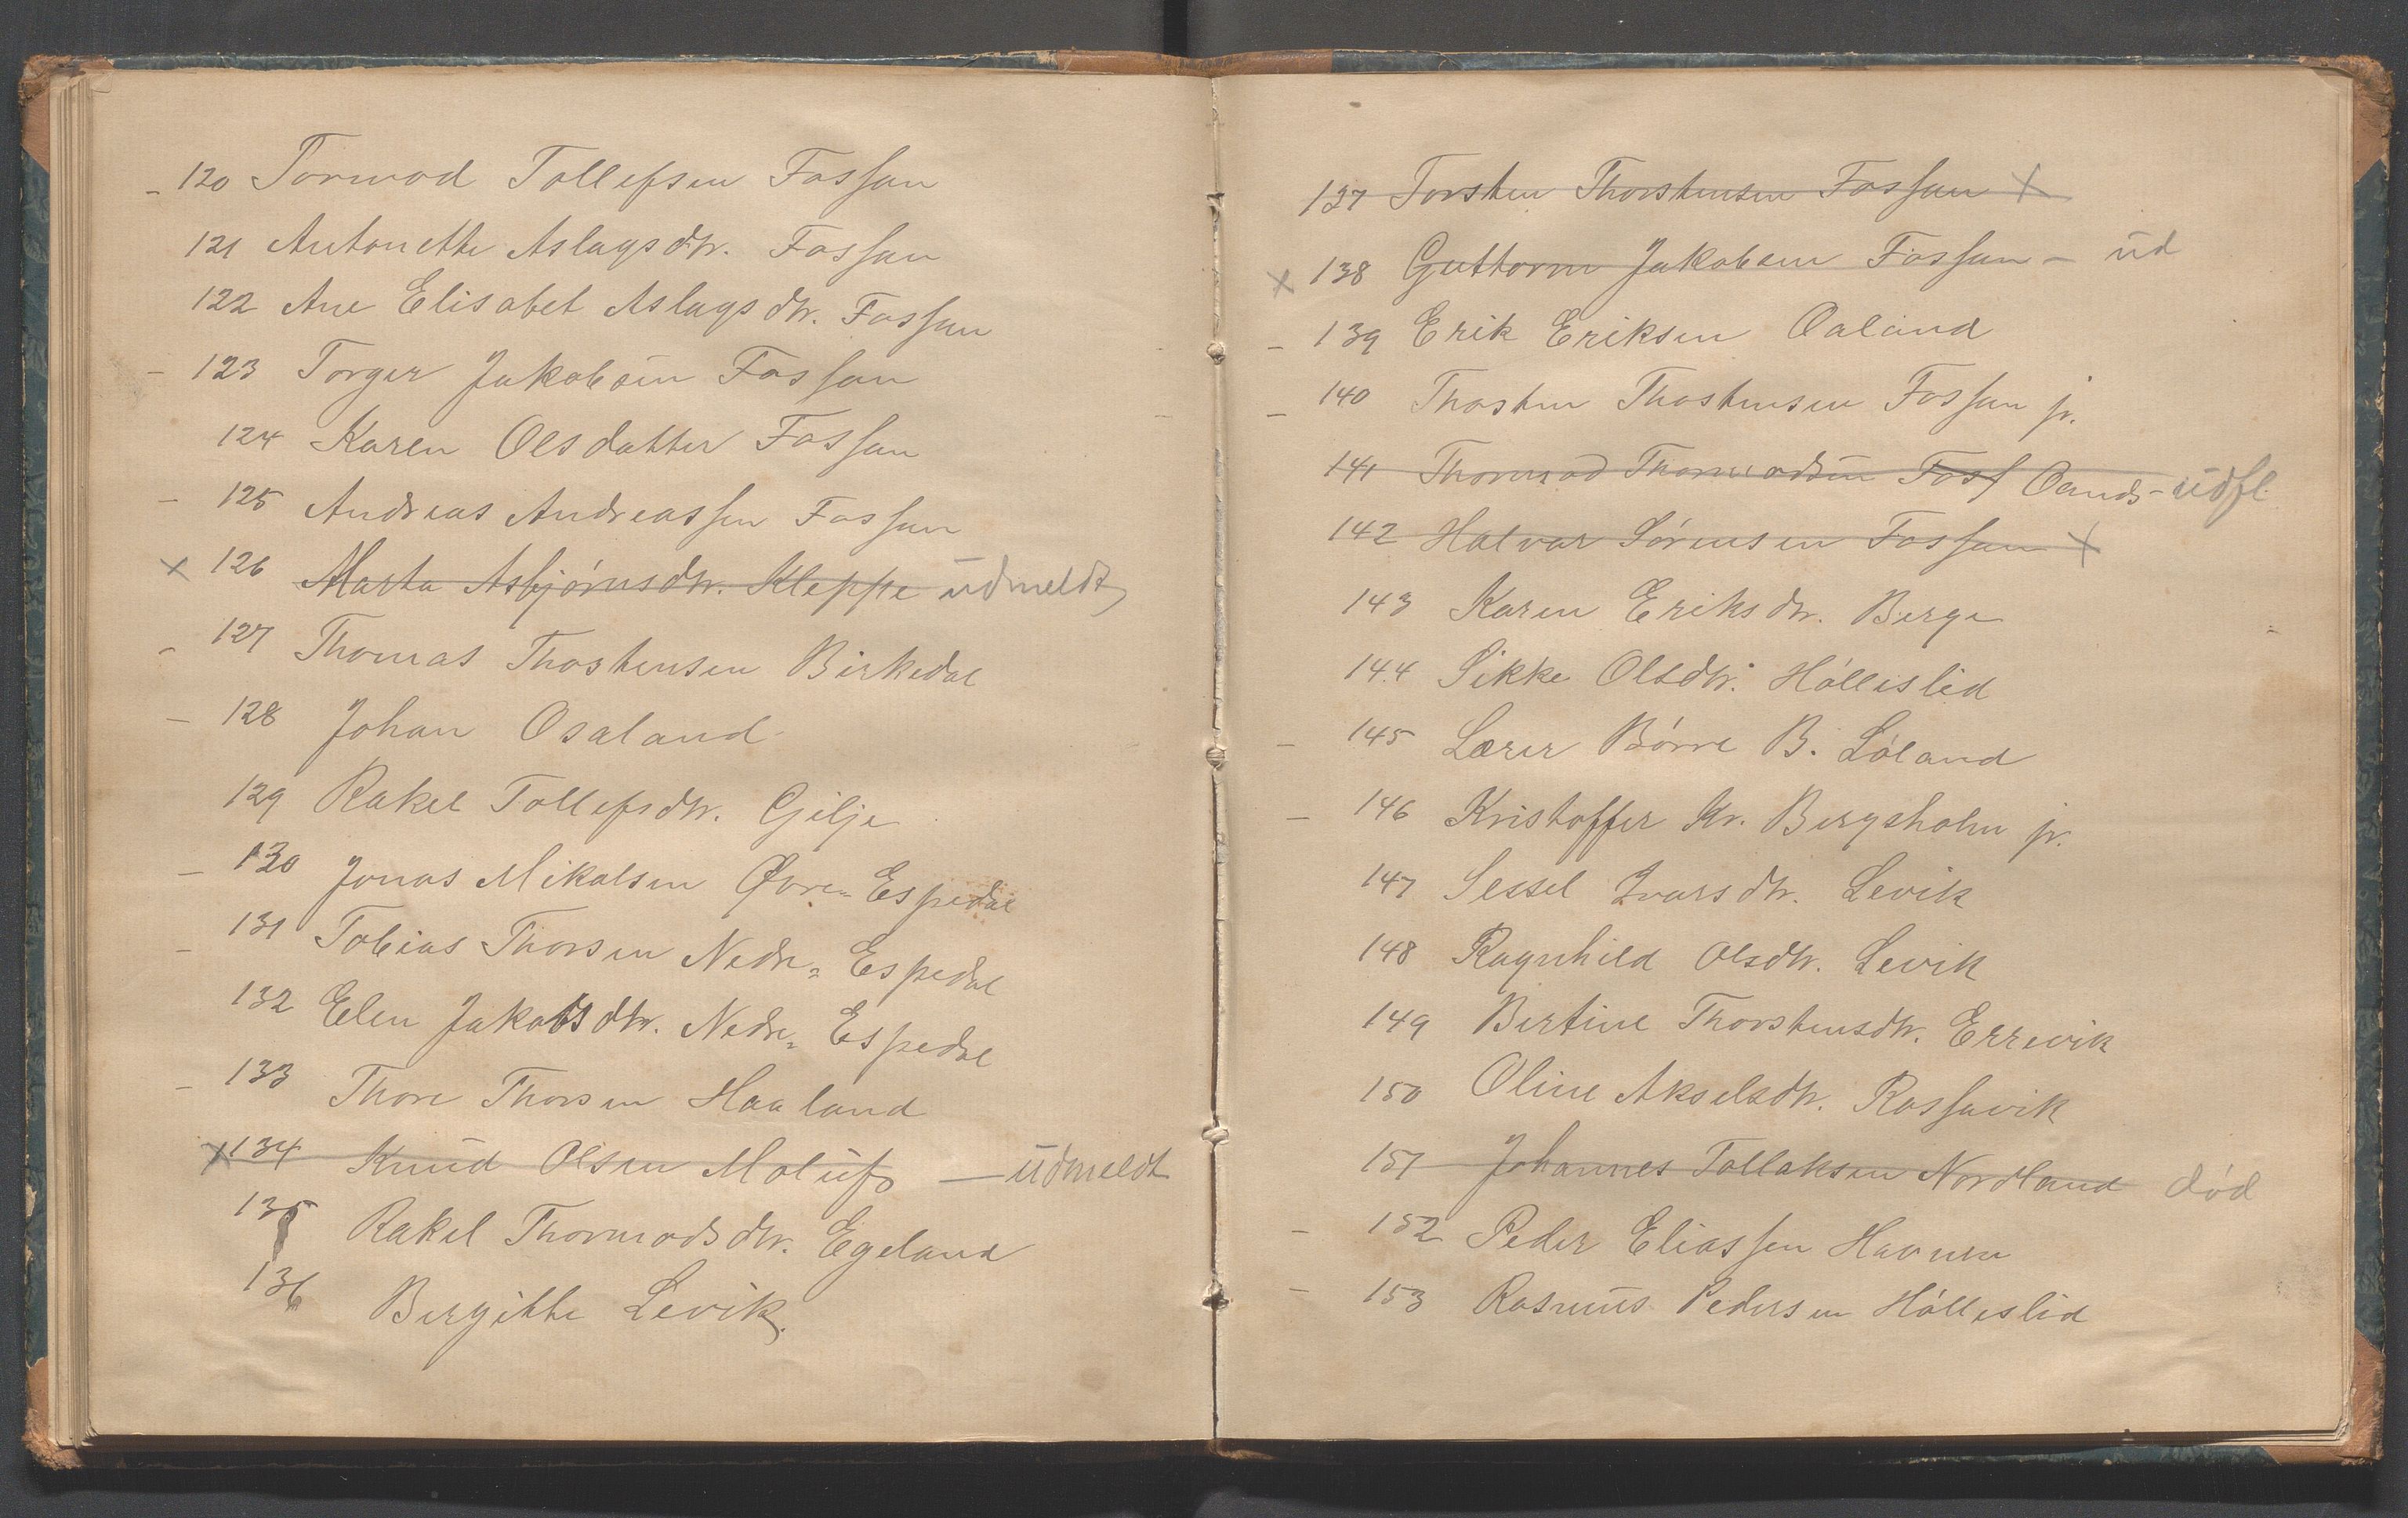 - 120 Tormod Tollefsen Fossan
121 Antonette Aslagsdtr. Fossan
122 Ane Elisabet Aslagsdtr. Fossan
- 123 Torger Jakobsen Fossan
124 Karen Olsdatter Fossan
- 125 Andreas Andreassen Fossan
x 126 Marta Asbjørnsdtr. Kleppe udmeldt
- 127 Thomas Thostensen Birkedal
- 128 Johan Osaland
129 Rakel Tollefsdtr. Gilje
- 130 Jonas Mikalsen Øvre= Espedal
- 131 Tobias Thorsen Nedre= Espedal
132 Elen Jakobsdtr. Nedre= Espedal
- 133 Thore Thorsen Haaland
x 134 Knud Olsen Molaug — udmeldt
135 Rakel Thormodsdtr. Egeland
136 Bergitte Levik.
137 Torsten Thorstensen Fossan x
x 138 Guttorm Jakobsen Fossan - ud
- 139 Erik Eriksen Oaland
- 140 Thosten Thostensen Fossan jr.
141 Thormod Thormodsen Foss Oands- udfl.
142 Halvar Sørensen Fossan x
143 Karen Eriksdtr. Berge
144 Sikke Olsdtr. Höllislid
- 145 Lærer Börre B. Löland
- 146 Kristoffer Kr. Bergsholm jr.
147 Sessel Ivarsdtr. Levik
148 Ragnhild Olsdtr. Levik
149 Bertine Thorstensdtr. Errevik
150 Oline Akselsdtr. Rossavik
151 Johannes Tollaksen Nordland død
- 152 Peder Eliassen Havnen
- 153 Rasmus Pedersen Hölleslid